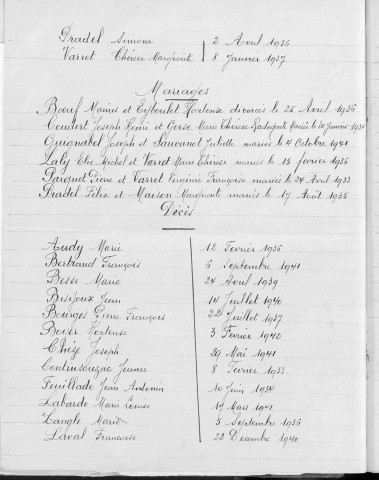 Pradel Simone 2 Avril 1936
Varret Thérèse Marguerite 8 Janvier 1937
Mariages
Bœuf Marius et Hortense divorcés le 26 Avril 1936
Coudert Joseph Henri et Gorse Marie Thérèse Mariés le 20 Janvier 1934
Guignabel Joseph et Sauvanet Juliette mariés le 4 Octobre 1941
Laly Elie Michel et Varret Marie Thérèse mariés le 15 février 1936
Parquet Pierre et Varret Virginie Françoise mariés le 24 Avril 1933
Pradel Félix et Maison Marguerite mariés le 17 Août 1935
Décès
Audy Marie 12 Février 1936
Bertrand François 6 Septembre 1941
Besse Marie 24 Avril 1939
Bisijoux Jean 14 Juillet 1940
Bourges Pierre François 22 Juillet 1937
Bover Hortense 3 Février 1942
Chèze Joseph 29 Mai 1941
Contensouzac Jeanne 8 Février 1933
Feuillade Jean Antonin 10 Juin 1934
Labarde Marie Louise 17 Mars 1941
Langle Marie 5 Septembre 1936
Laval Françoise 22 Décembre 1940